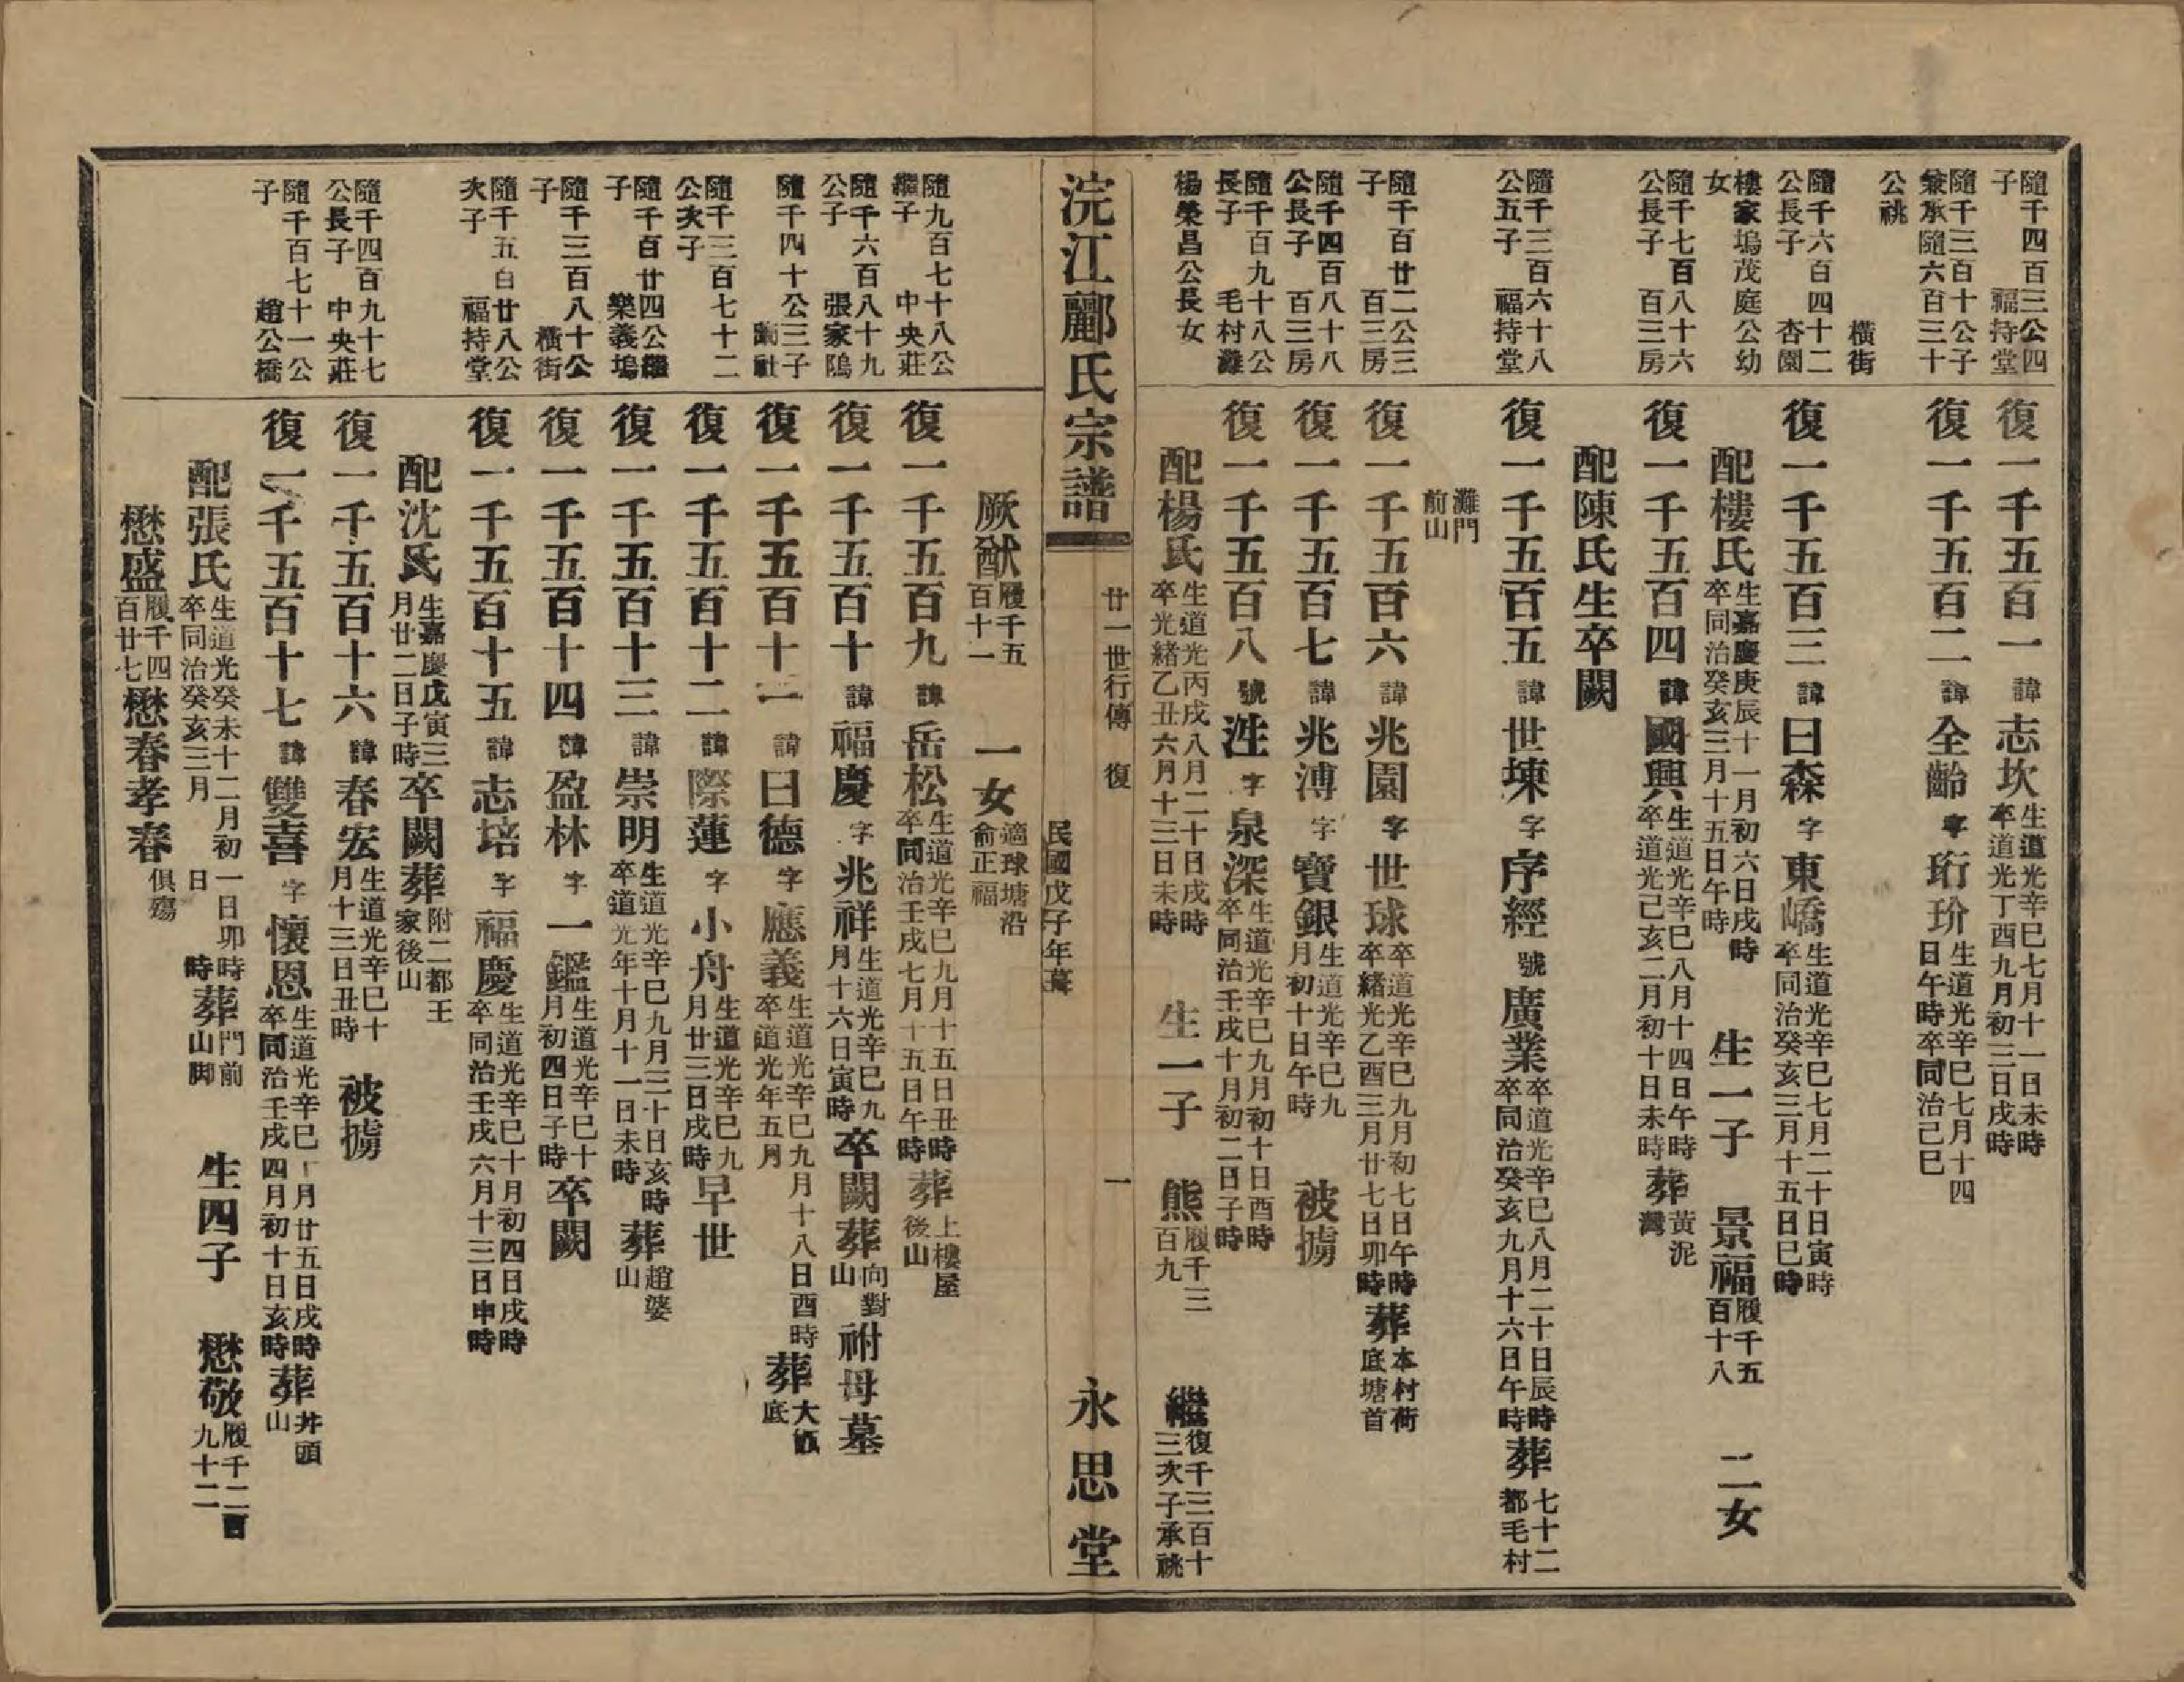 隨千四百三公四子　福持堂
復一千五百一　諱志坎　生道光辛巳七月十一日未時卒道光丁酉九月初三日戌時
隨千三百十公子兼承隨六百三十公祧　橫街
復一千五百二　諱全齡　字珩玠　生道光辛巳七月十四日午時卒同治己巳
隨千六百四十二公長子　杏園
復一千五百三　諱曰森　字東嶠　生道光辛巳七月二十日寅時卒同治癸亥三月十五日巳時
樓家塢茂庭公幼女
配樓氏　生嘉慶庚辰十一月初六日戌時卒同治癸亥三月十五日午時　生一子　景福　履千五百十八　二女
隨千七百八十六公長子　百三房
復一千五百四　諱國興　生道光辛巳八月十四日午時卒道光己亥二月初十日未時　葬黃泥灣
配陳氏生卒闕
隨千三百六十八公五子　福持堂
復一千五百五　諱世堜　字序經　號廣業　卒道光辛巳八月二十日辰時卒同治癸亥九月十六日午時　葬七十二都毛村
灘門前山
隨千百廿二公三子　百三房
復一千五百六　諱兆園　字世球　卒道光辛巳九月初七日午時卒緒光乙酉三月廿七日卯時　葬本村荷底塘首
隨千四百八十八公長子　百三房
復一千五百七　諱兆溥　字寶銀　生道光辛巳九月初十日午時　被擄
隨千百九十八公長子　毛村灘
復一千五百八　號泩　字泉深　生道光辛巳九月初十日酉時卒同治壬戌十月初二日子時
楊榮昌公長女
配楊氏　生道光丙戌八月二十日戌時卒光緒乙丑六月十三日未時　生一子　熊　履千三百九　繼　復千三百十三次子承祧
浣江酈氏宗譜　廿一世行傳　復　一　永思堂
民國戊子年
厥猷　履千五百十一　一女　適球塘沿俞正福
隨九百七十八公繼子　中央莊
復一千五百九　諱岳松　生道光辛巳九月十五日丑時卒同治壬戌七月十五日午時　葬上樓屋後山
隨千六百八十九公子　張家隖
復一千五百十　諱福慶　字兆祥　生道光辛巳九月十六日寅時　卒闕葬向對山　祔母墓
隨千四十公三子　蘭社
復一千五百十一　諱曰德　字應義　生道光辛巳九月十八日酉時卒道光年五月　葬大瓶底
隨千三百七十二公次子
復一千五百十二　諱際蓮　字小舟　生道光辛巳九月廿三日戌時　早世
隨千百廿四公繼子　樂義塢
復一千五百十三　諱崇明　生道光辛巳九月三十日亥時卒道光年十月十一日未時　葬趙婆山
隨千三百八十公子　橫街
復一千五百十四　諱盈林　字一鑑　生道光辛巳十月初四日子時　卒闕
隨千五百廿八公次子　福持堂
復一千五百十五　諱志培　字福慶　生道光辛巳十月初四日戌時卒同治壬戌六月十三日申時
配沈氏　生嘉慶戊寅三月廿二日子時　卒闕葬附二都王家後山
隨千四百九十七公長子　中央莊
復一千五百十六　諱春宏　生道光辛巳十月十三日丑時　被擄
隨千百七十一公子　趙公橋
復一千五百十七　諱雙喜　字懷恩　生道光辛巳十月廿五日戌時卒同治壬戌四月初十日亥時　葬井頭山
配張氏　生道光癸未十二月初一日卯時卒同治癸亥三月　日　時　葬門前山脚　生四子　懋敬　履千二百九十二
懋盛　履千四百廿七　懋春孝春　俱殤